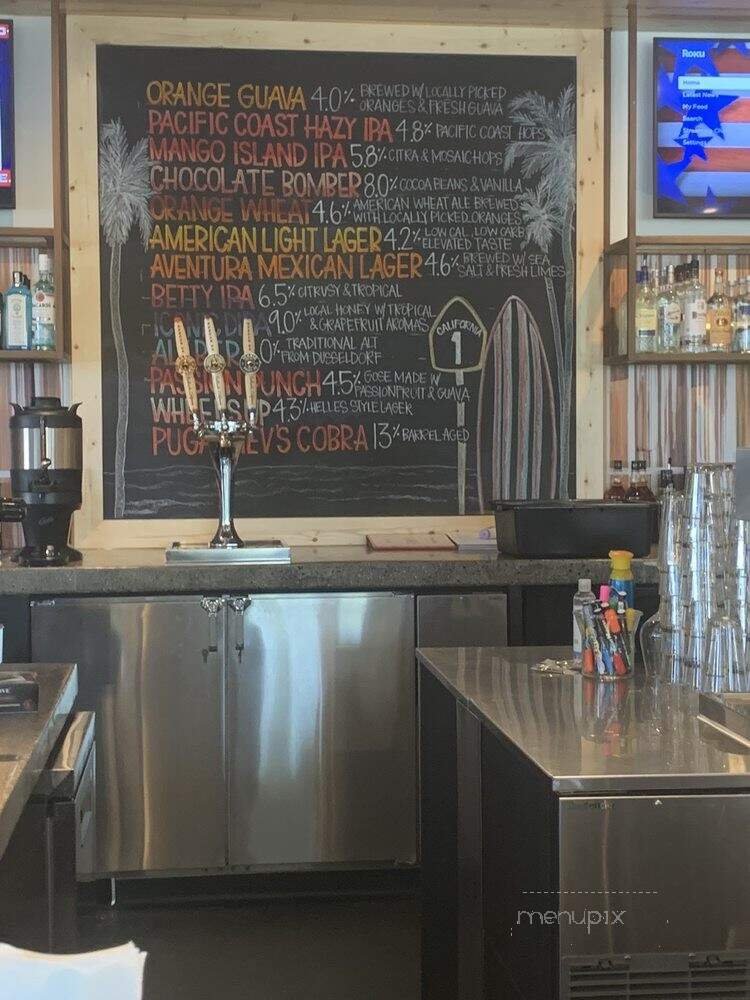 ORANGE GUAVA 4.0% BREWED W/ LOCALLY PICKED
ORANGES & FRESH GUAVA
PACIFIC COAST HAZY IPA 4.8% PACIFIC COAST HOPS
MANGO ISLAND IPA 5.8% CITRA & MOSAIC HOPS
CHOCOLATE BOMBER 8.0% COCOA BEANS & VANILLA
ORANGE WHEAT 4.6% AMERICAN WHEAT ALE BREWED
WITH LOCALLY PICKED ORANGES
AMERICAN LIGHT LAGER 4.2% LOW CAL, LOW CARB
ELEVATED TASTE
AVENTURA MEXICAN LAGER 4.6% BREWED W/ SEA
SALT & FRESH LIMES
BETTY IPA 6.5% CITRUSY & TROPICAL
9.0% LOCAL HONEY W/ TROPICAL
& GRAPEFRUIT AROMAS
TRADITIONAL ALT
FROM DUSSELDORF
PASSION PUNCH 4.5% GOSE MADE W/
PASSIONFRUIT & GUAVA
4.3% HELLES STYLE LAGER
COBRA 13% BARREL AGED
CALIFORNIA
1
Roku
Home
Latest News
My Food
Search
Settings
menupix